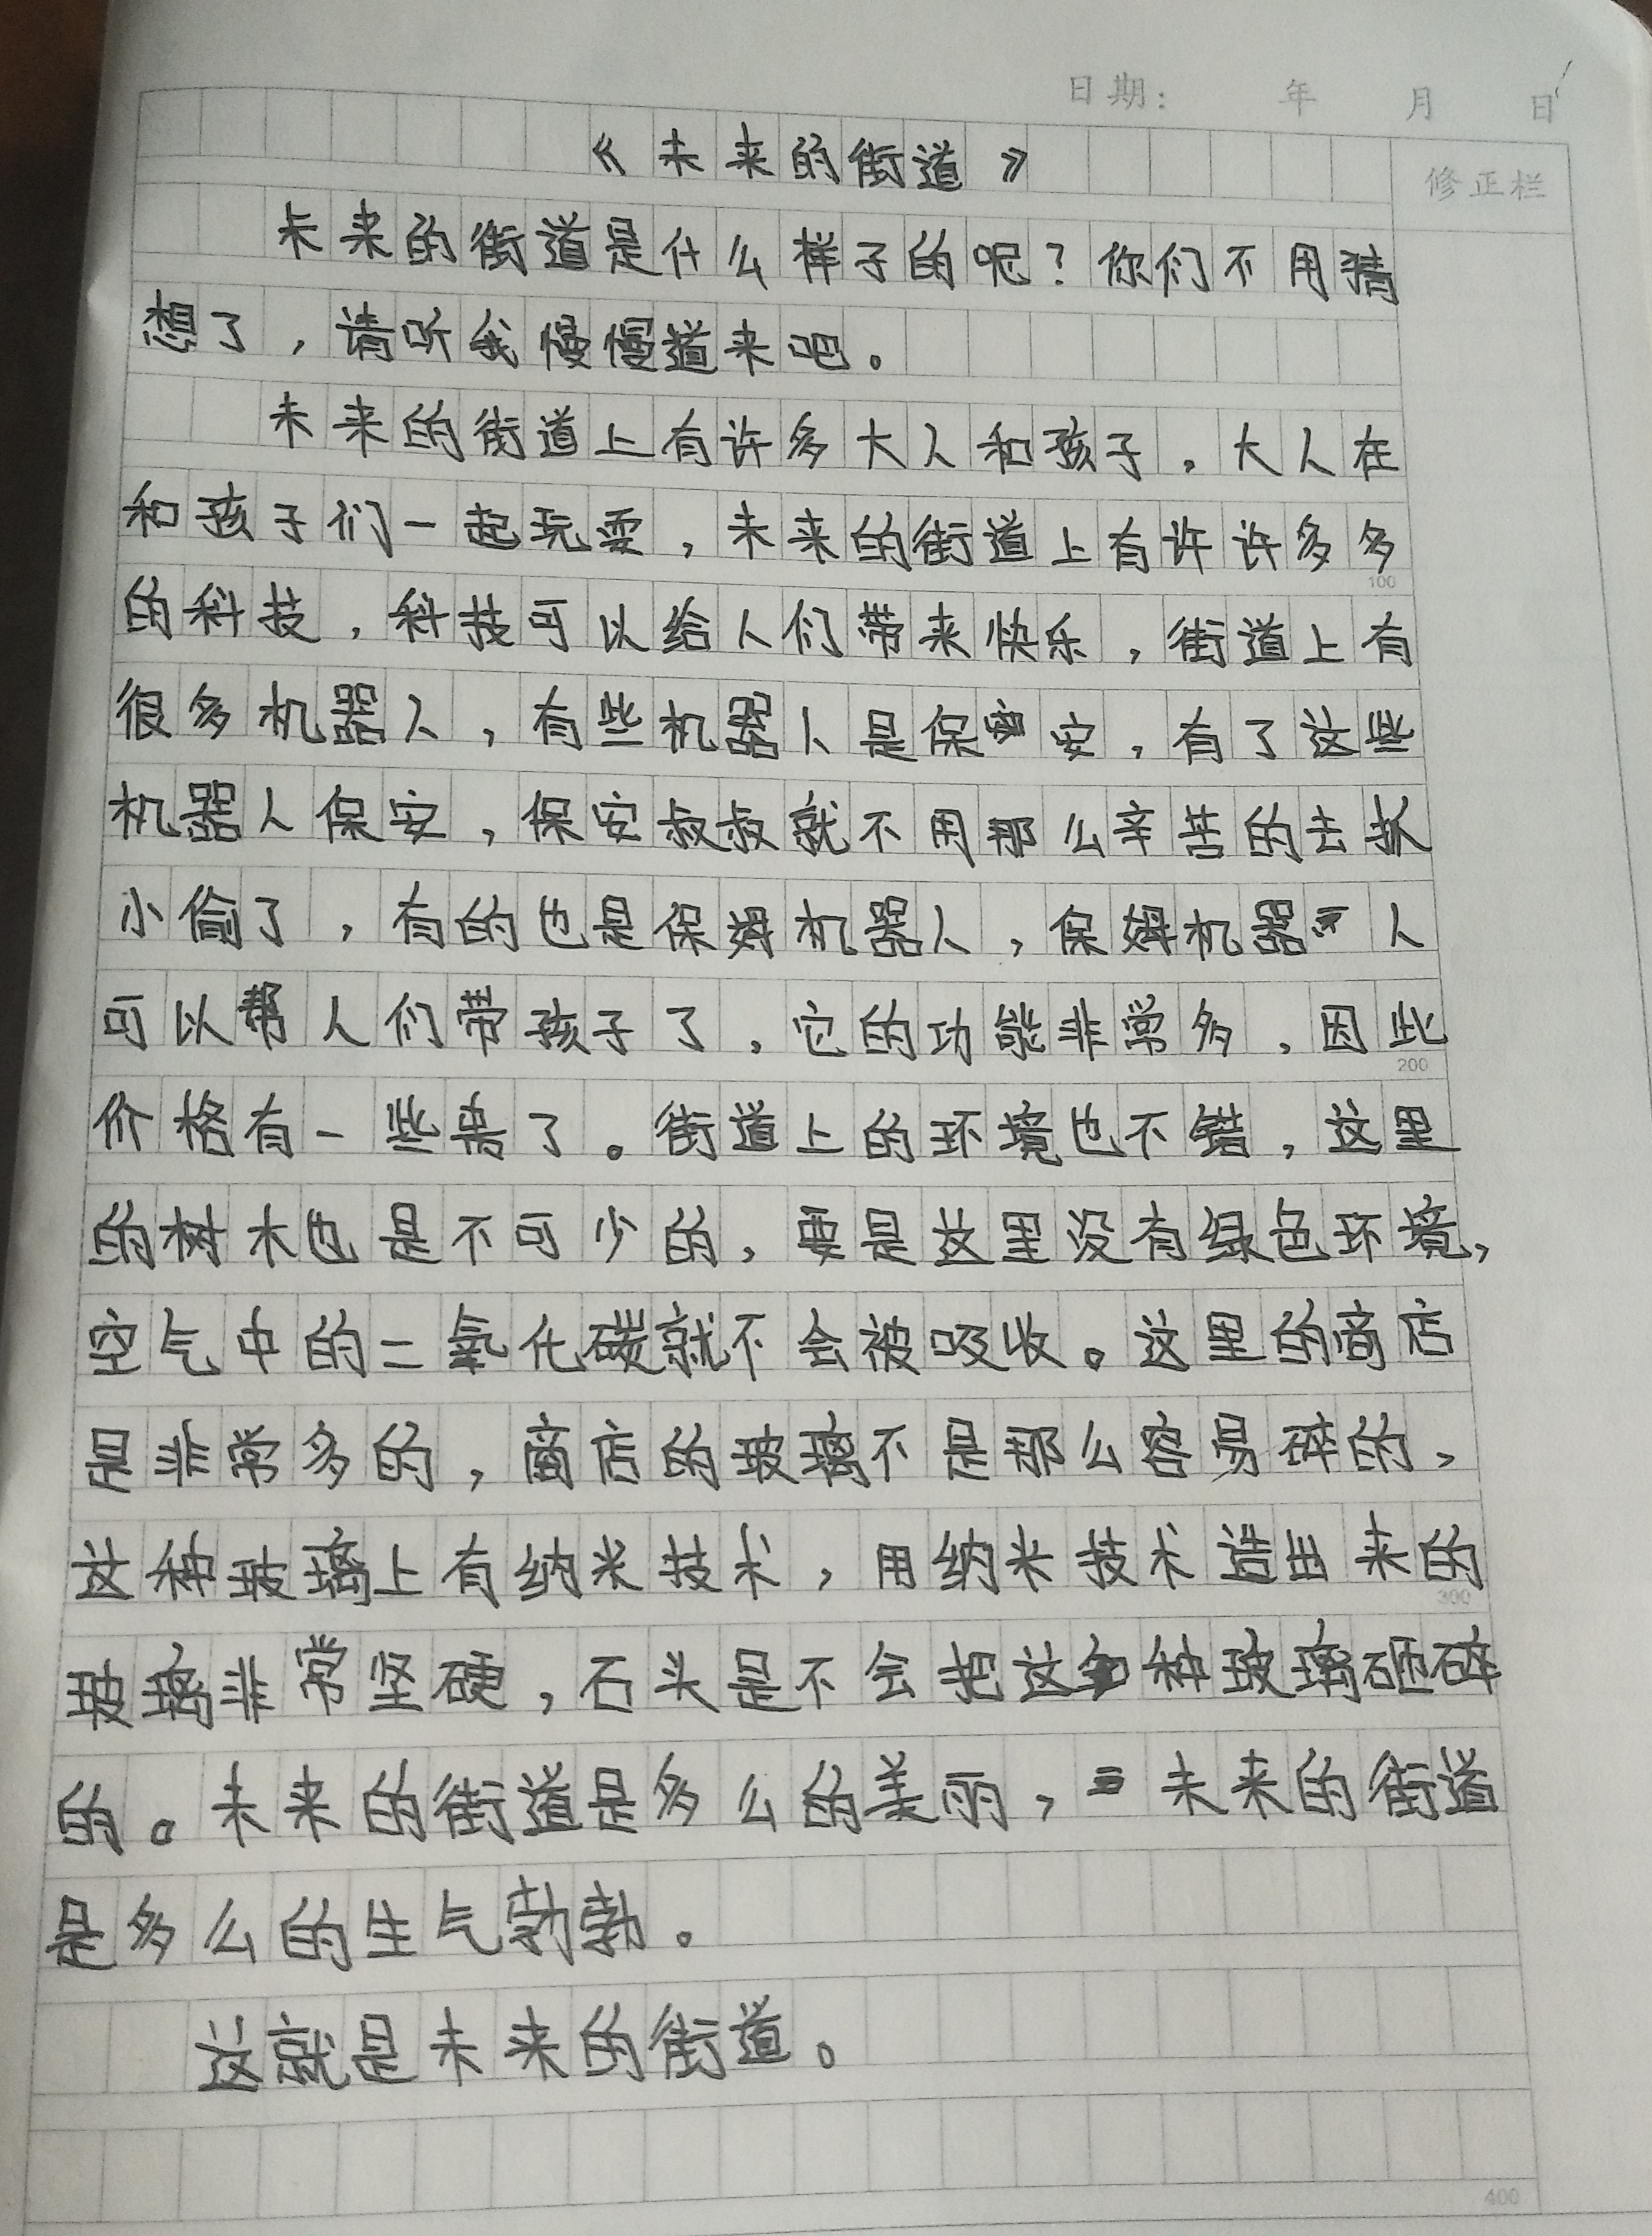 日期： 年 月 日
修正栏
《未来的街道》
未来的街道是什么样子的呢？你们不用猜
想了，请听我慢慢道来吧。
未来的街道上有许多大人和孩子，大人在
和孩子们一起玩耍，未来的街道上有许许多多
100
的科技，科技可以给人们带来快乐，街道上有
很多机器人，有些机器人是保安，有了这些
机器人保安，保安叔叔就不用那么辛苦的去抓
小偷了，有的也是保姆机器人，保姆机器人
可以帮人们带孩子了，它的功能非常多，因此
200
价格有一些贵了。街道上的环境也不错，这里
的树木也是不可少的，要是这里没有绿色环境，
空气中的二氧化碳就不会被吸收。这里的商店
是非常多的，商店的玻璃不是那么容易碎的，
这种玻璃上有纳米技术，用纳米技术造出来的
300
玻璃非常坚硬，石头是不会把这种玻璃砸碎
的。未来的街道是多么的美丽，未来的街道
是多么的生气勃勃。
这就是未来的街道。
400